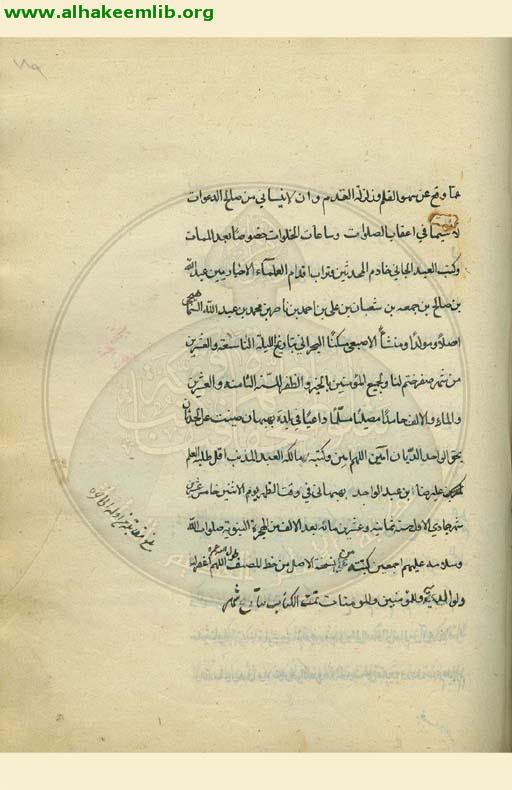 www.alhakeemlib.org
عما وقع عن سهو القلم وزلة القدم وان لا ينساني من صالح الدعوات
لا سيما في اعقاب الصلوات وساعات الخلوات خصوصا بعد الممات
وكتب العبد الجاني خادم المحدثين وتراب اقدام العلمآء الاخباريين عبد الله
بن صالح بن جمعه بن شعبان بن علي بن احمد بن ناصر بن محمد بن عبد الله السماهيجي
اصلا ومولدا ومنشأ الاصبعي مسكنا البحراني بتاريخ الليلة التاسعة والعشرين
من شهر صفر ختم لنا ولجميع المؤمنين بالخير والظفر للسنه الثامنه والعشرين
والماة والالف حامدا مصليا مسلما داعيا في بلدة بهبهان صينت عن الحدثان
بحق الواحد الديان آمين اللهم امين وكتبه مالكه العبد المذنب اقل طلبة العلم
علي رضا ابن عبد الواحد بهبهاني في وقت الظهر يوم الاثنين خامس عشرين
شهر جمادى الاول سنه ثمانيه وعشرين مائه بعد الالف من الهجرة النبويه صلوات الله
وسلامه عليهم اجمعين كتبته من نسخة الاصل من خط المصنف اللهم اغفر لنا
ولوالديه وللمؤمنين والمومنات تمت الكتاب بتاريخ شهر